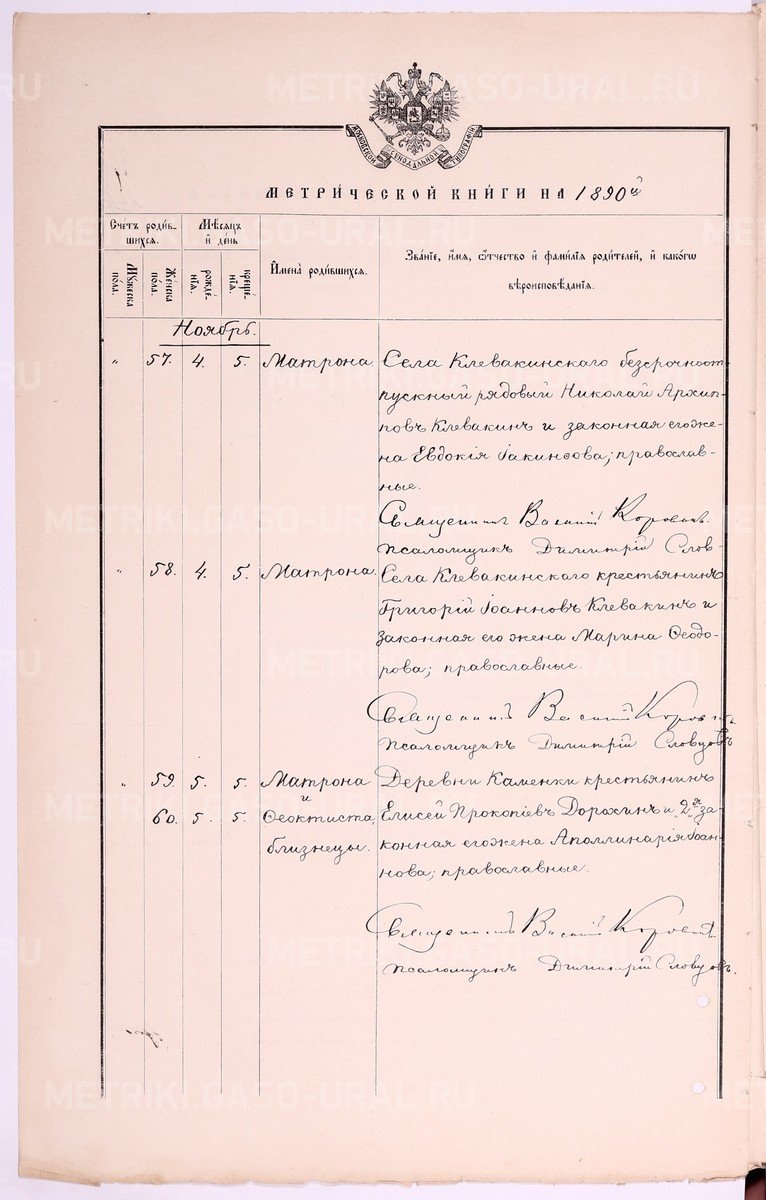 МОСКОВСКОЙ СѴНОДАЛЬНОЙ ТИПОГРАФІИ
МЕТРИ́ЧЕСКОЙ КНИ́ГИ НА 1890й
Счетъ роди́в-
шихся.
Мѣсяцъ
и҆ де́нь
И҆мена̀ роди́вшихся.
Зва́нїе, и҆́мя, ѻ҆́тчество и҆ фами́лїя роди́телей, и҆ како́гѡ
вѣроисповѣ́данїя.
Мꙋ́жеска
по́ла.
Же́нска
по́ла.
рожде́-
нїѧ.
креще́-
нїѧ.
Ноябрь.
" 57. 4. 5. Матрона. Села Клевакинскаго безсрочноот-
пускный рядовый Николай Архип-
повъ Клевакинъ и законная его же-
на Евдокія Іакинѳова; православ-
ные.
Священникъ Василій Коровинъ.
Псаломщикъ Димитрій Слов-
" 58. 4. 5. Матрона. Села Клевакинскаго крестьянинъ
Григорій Іоанновъ Клевакинъ и
законная его жена Марина Ѳеодо-
рова; православные.
Священникъ Василій Коровинъ.
Псаломщикъ Димитрій Словцовъ
" 59. 5. 5. Матрона Деревни Каменки крестьянинъ
и
60. 5. 5. Ѳеоктиста, Елисей Прокопіевъ Дорохинъ и „2я" за-
близнецы. конная его жена Аполлинарія Іоан-
нова; православные.
Священникъ Василій Коровинъ.
Псаломщикъ Димитрій Словцовъ.
METRIKI.GASO-URAL.RU